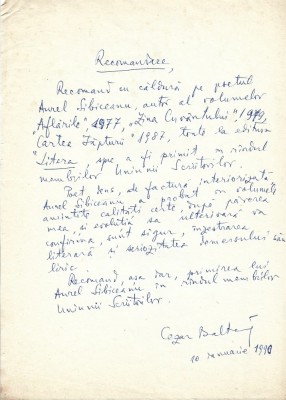 Recomandare,
Recomand cu căldură pe poetul
Aurel Sibiceanu, autor al volumelor
„Aflările", 1977, „Ziua Cuvântului",
Cartea Făpturii" 1987, toate la editura
Litera spre a fi primit în rîndul
membrilor Uniunii Scriitorilor.
Poet dens, de factură interiorizată
Aurel Sibiceanu a probat în volumele
amintite calități certe, după părerea
mea, și evoluția sa ulterioară va
confirma, sunt sigur, înzestrarea
literară și seriozitatea demersului său
liric.
Recomand, așa dar, primirea lui
Aurel Sibiceanu în rîndul membrilor
Uniunii Scriitorilor.
Cezar Baltag
10 ianuarie 1990